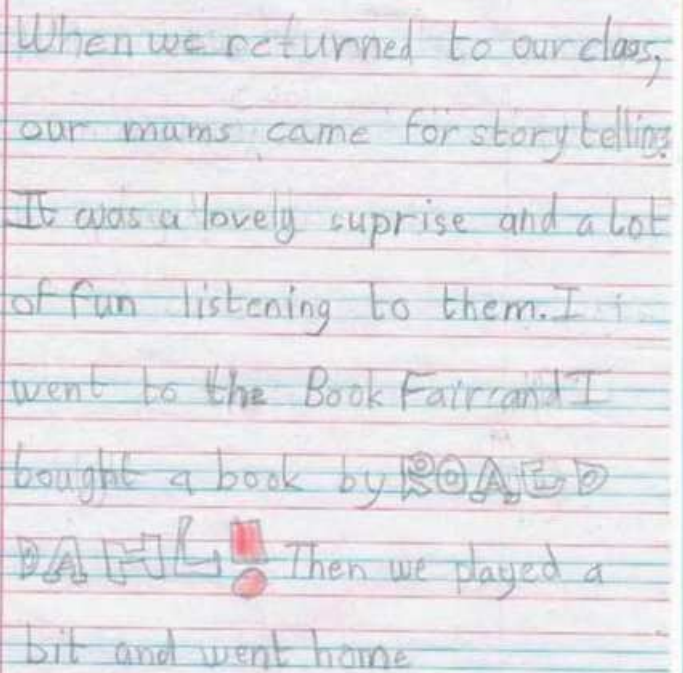 When we returned to our class,
our mums came for story telling.
It was a lovely suprise and a lot
of fun listening to them. I
went to the Book Fair and I
bought a book by ROALD
DAHL! Then we played a
bit and went home